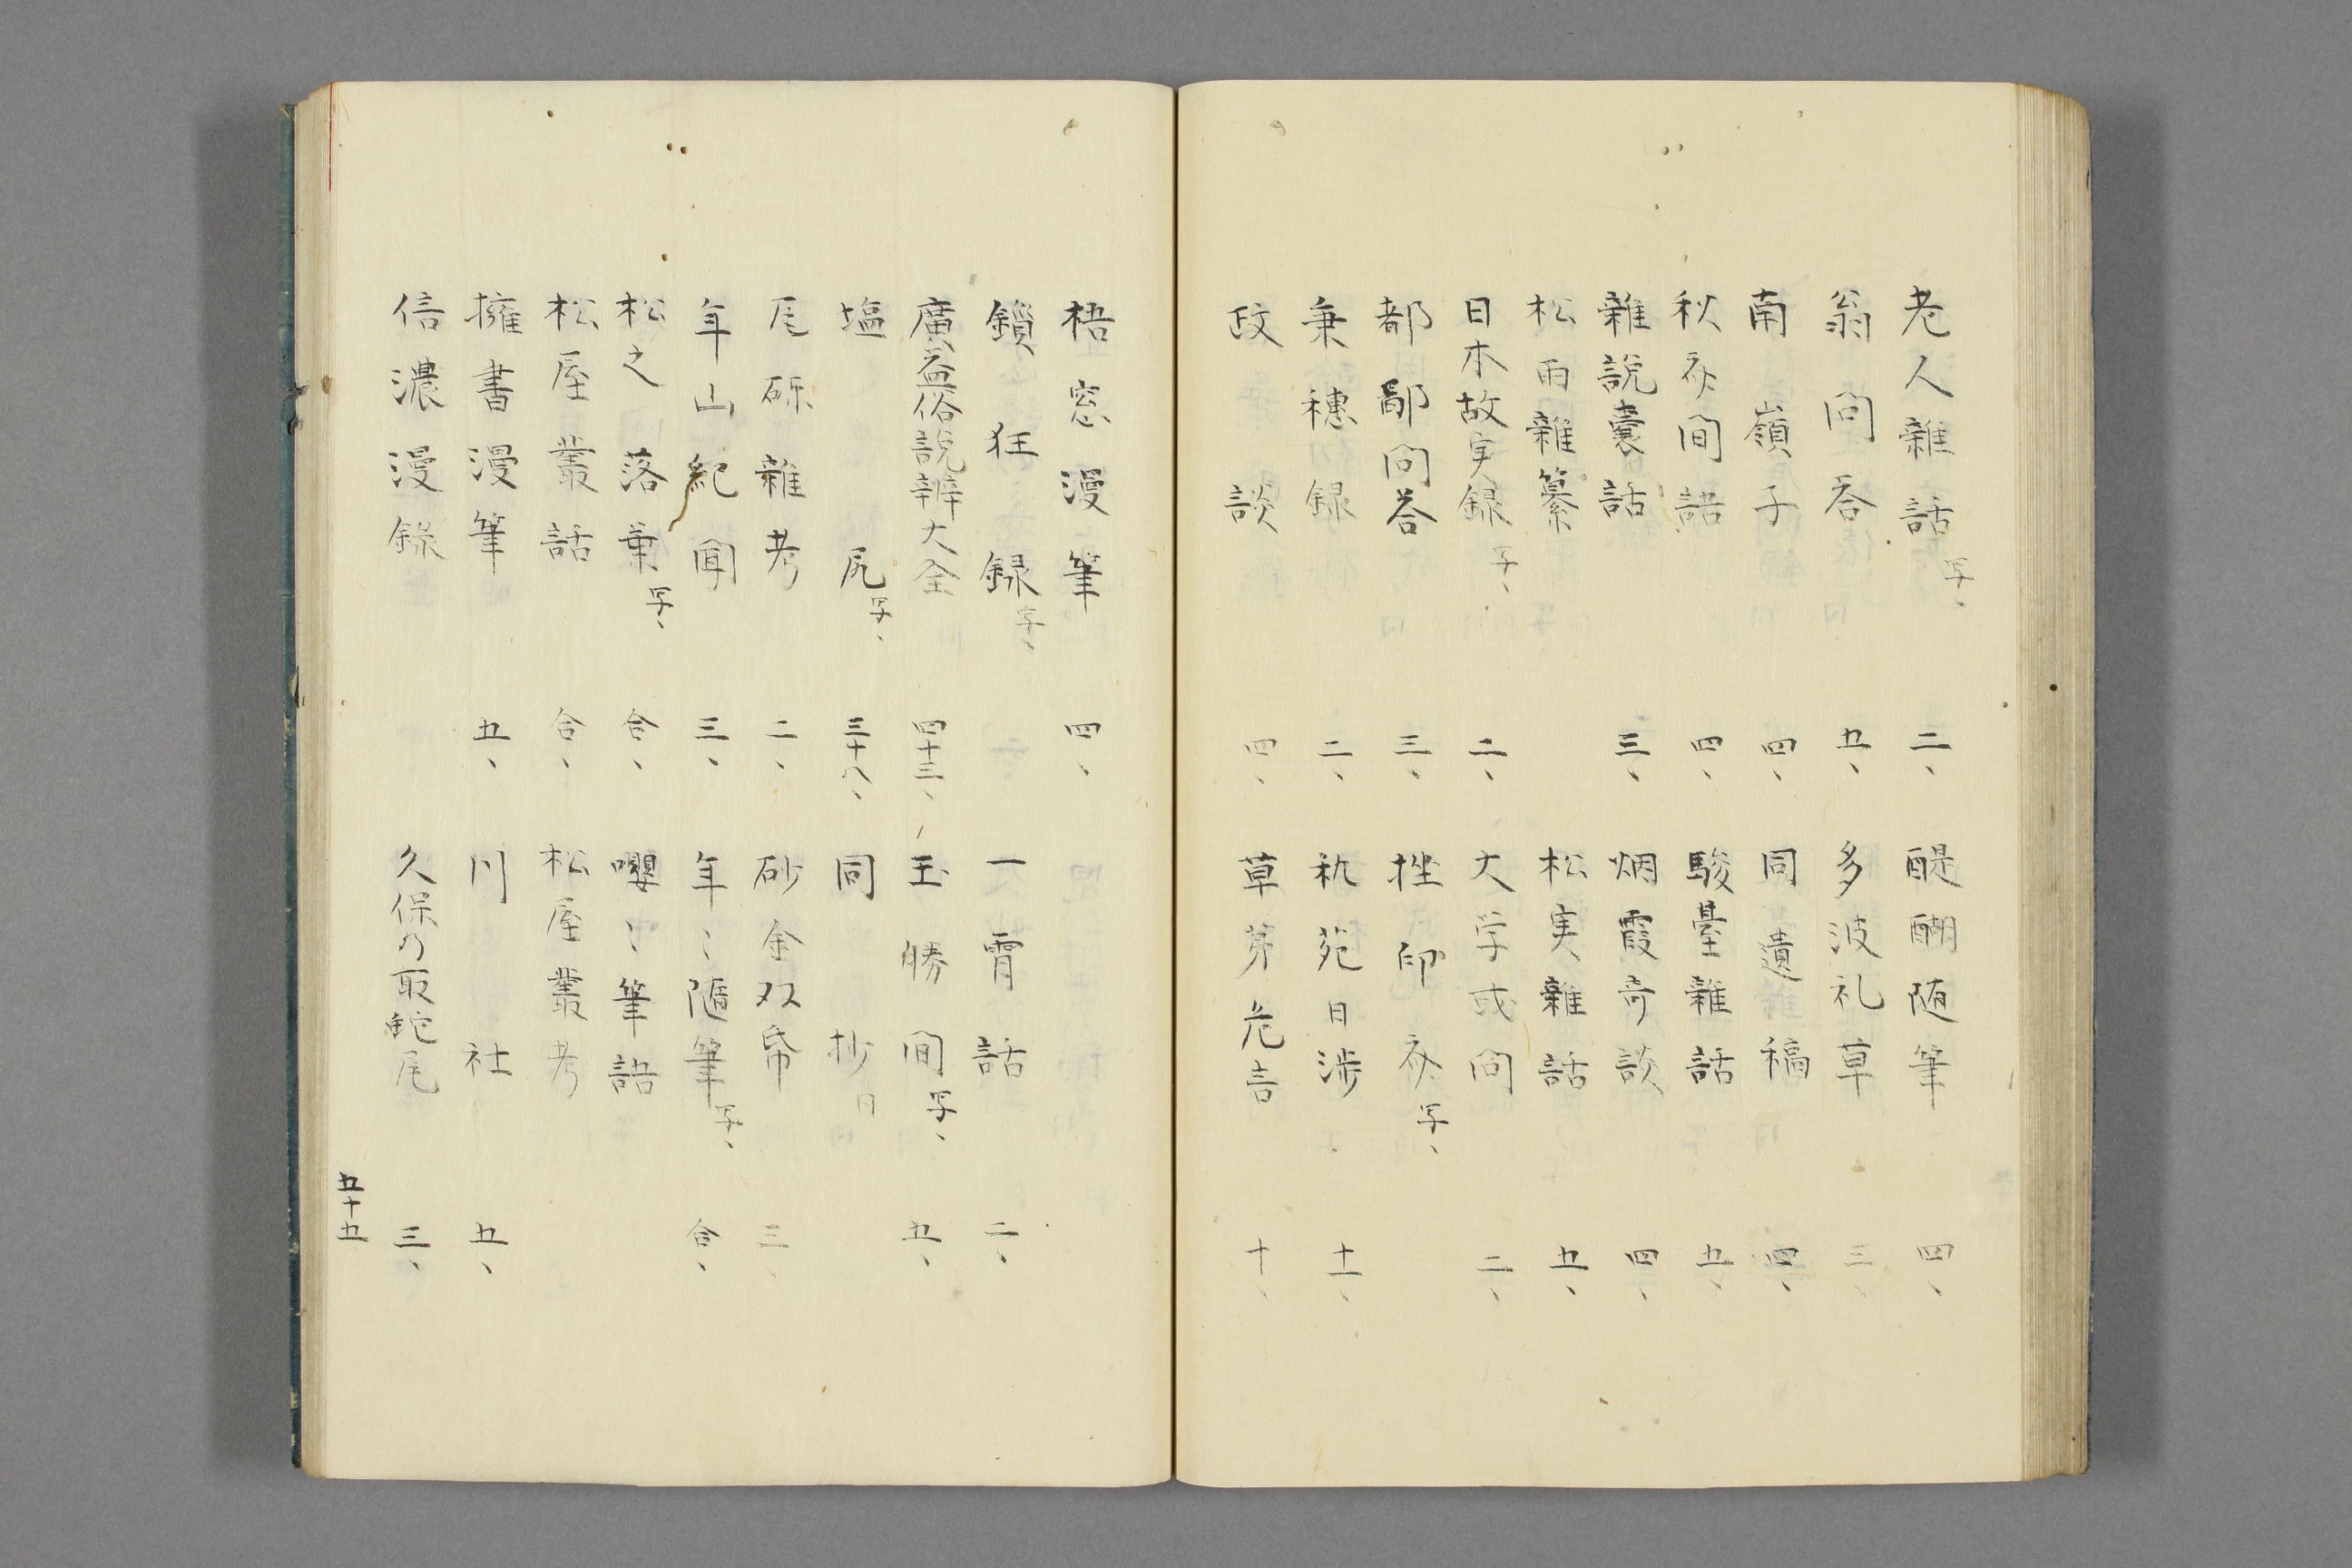 老人雑話 写、 二、 醍醐随筆 四、
翁問答 五、 多波礼草 三、
南嶺子 四、 同遺稿 四、
秋斎間語 四、 駿臺雜話 五、
雜説嚢話 三、 烟霞奇談 四、
松雨雜纂 松実雜話 五、
日本故実録 写、 二、 大学或問 二、
都鄙問荅 三、 挫印 写、
秉穂録 二、 秇苑日渉 十一、
政談 四、 草茅危言 十、
梧窓漫筆 四、
鎖狂録 写、 一宵話 二、
廣益俗説辨大全 四十三、 玉勝間 写、 五、
塩尻 写、 三十八、 同抄 日
尾砾雜考 二、 砂金双帋 三、
年山紀聞 三、 年〻随筆 写、 合、
松之落葉 写、 合、 嚶〻筆語
松屋叢話 合、 松屋叢考
擁書漫筆 五、 川社 五、
信濃漫録 久保乃取蛇尾 三、
五十五